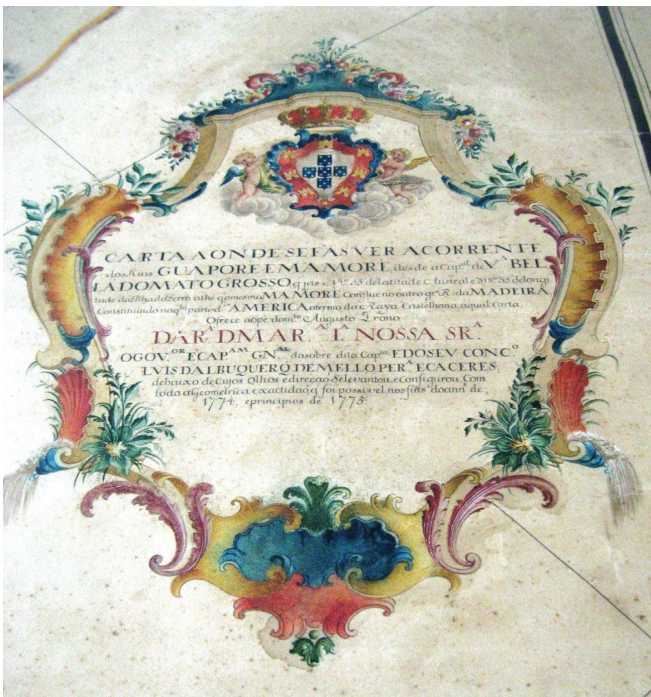 CARTA AONDE SE FAS VER A CORRENTE
dos Rius GUAPORE E MAMORE desde a Cap.al de V.A BEL
LA DO MATO GROSSO q jas e de latitude e de longi
tude da Ilha do Ferro athé q o mesmo MAMORE Conflue no outro gr.e R. da MADEIRA
Constituindo naq.la parte d' AMERICA o termo da Raya Castelhana, a qual Carta
Ofrece aope dom.to Augusto Trono
D'AR. D MAR. I.A NOSSA SR.A
O GOV.OR E CAP.AM GN.AL da sobre dita Cap.nia E DO SEV CONC.O
LUIS D ALBUQUERQ DE MELLO PER.A E CACERES,
debaixo de Cujos Olhos e direcção Selevantou, e Configurou Com
toda a Geometrica exactidaõ q foi possivel nos fins do ann de
1774, e principios de 1775.